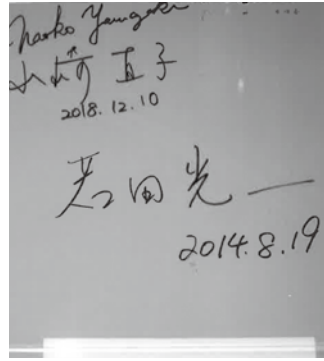 Naoko Yamazaki
山崎 直子
2018.12.10
若田光一
2014.8.19